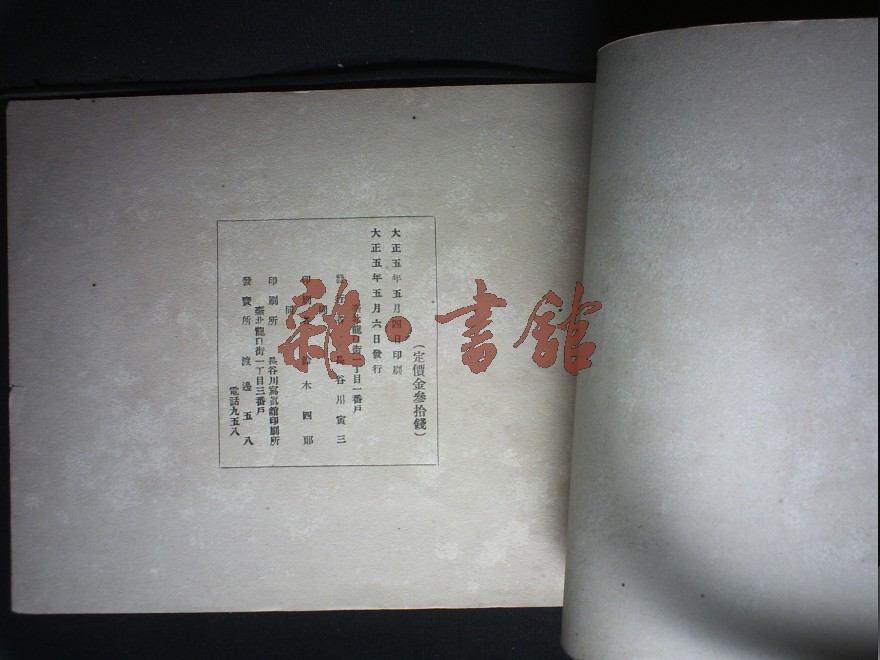 (定價金叄拾錢)
大正五年五月四日印刷
大正五年五月六日發行
臺北龍口街一丁目一番戶
長谷川寅三
同
鈴木四郎
同
印刷所 長谷川寫眞館印刷所
臺北龍口街一丁目三番戶
發賣所 渡邊五八
電話九五八
雜·書館